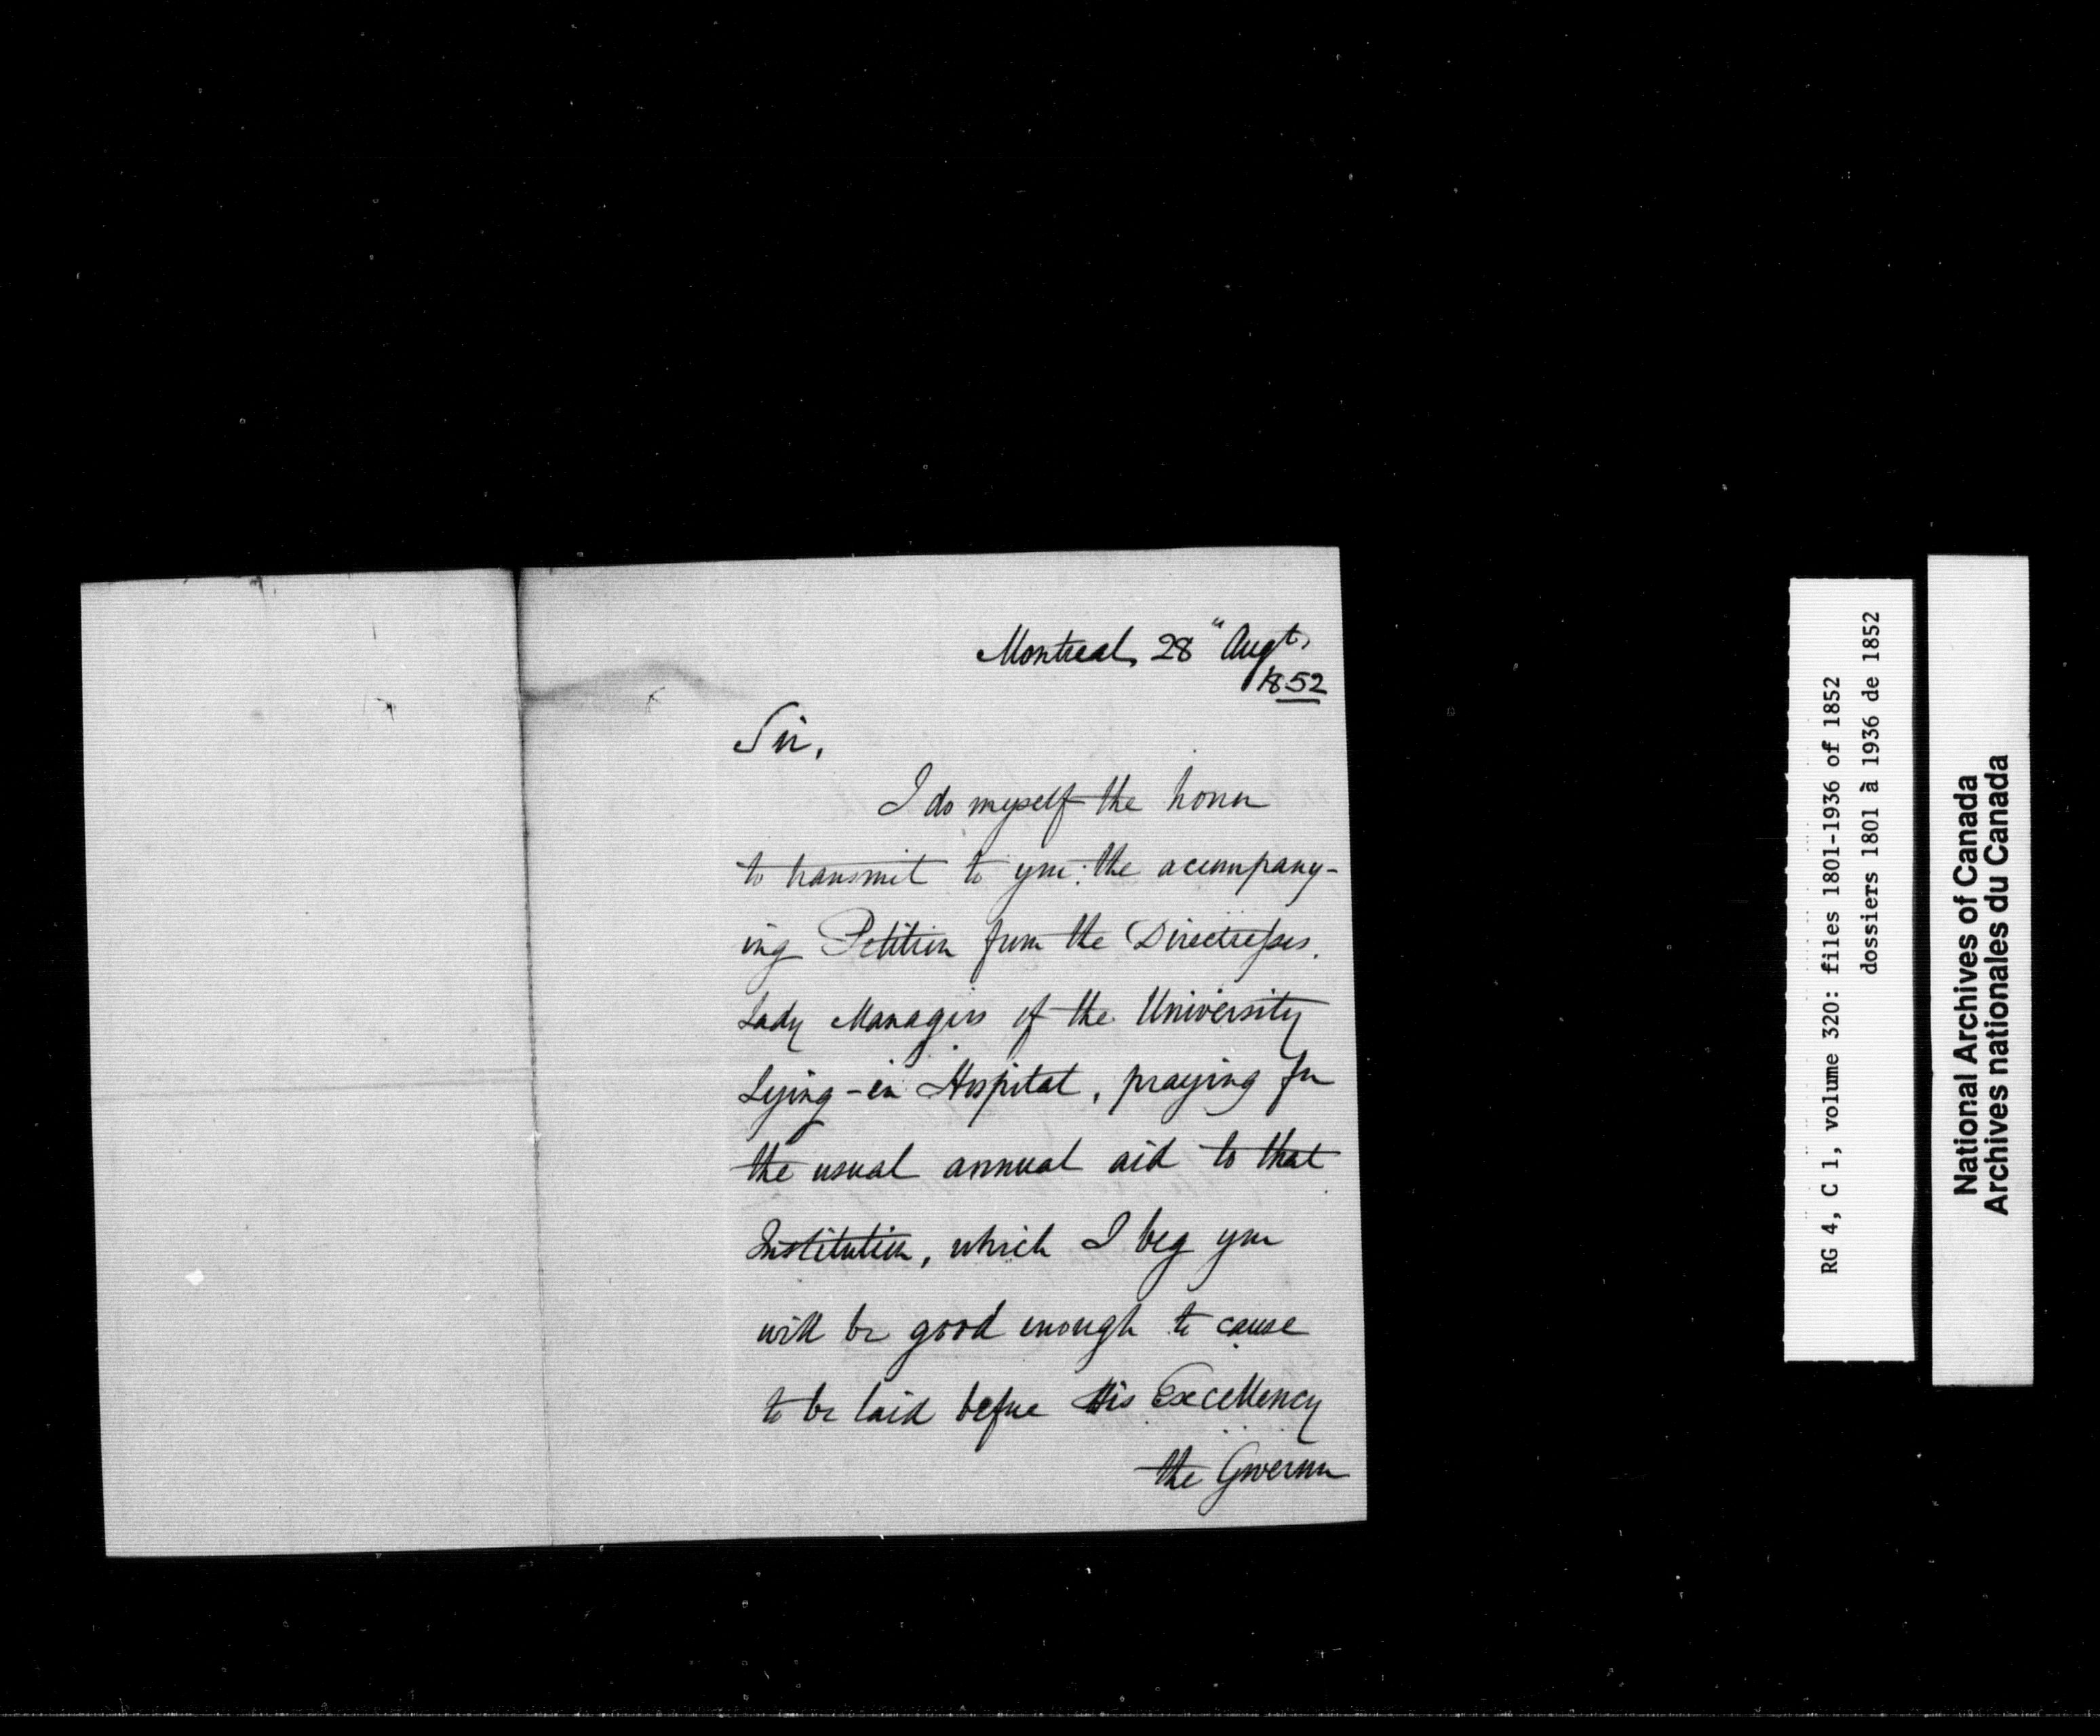 Montreal, 28" Augt,
1852
Sir,
I do myself the honor
to transmit to you the accompany-
ing Petition from the Directresses
Lady Managers of the University
Lying-in Hospital, praying for
the usual annual aid to that
Institution, which I beg you
will be good enough to cause
to be laid before His Excellency
the Governor
RG 4, C 1, volume 320: files 1801-1936 of 1852
dossiers 1801 à 1936 de 1852
National Archives of Canada
Archives nationales du Canada